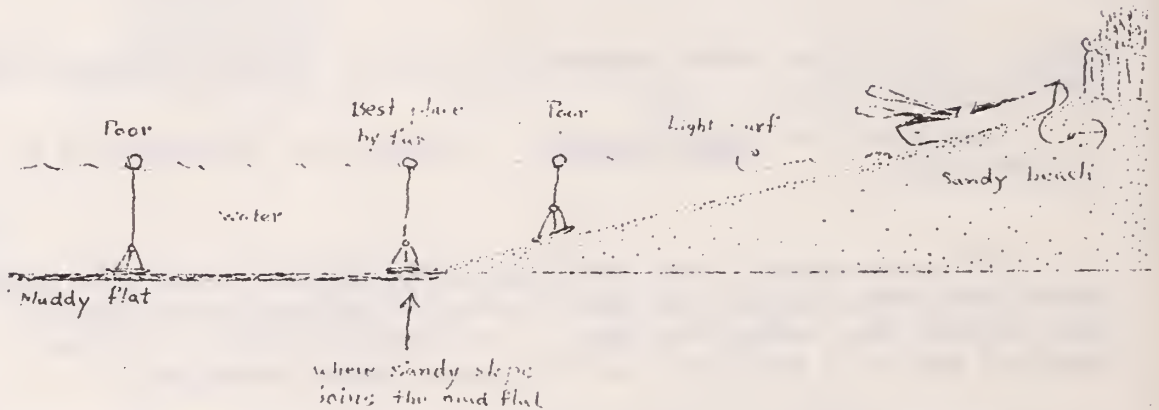 Poor
Best place
by far
Poor
Light surf
Water
Sandy beach
Muddy flat
where sandy slope
joins the mud flat